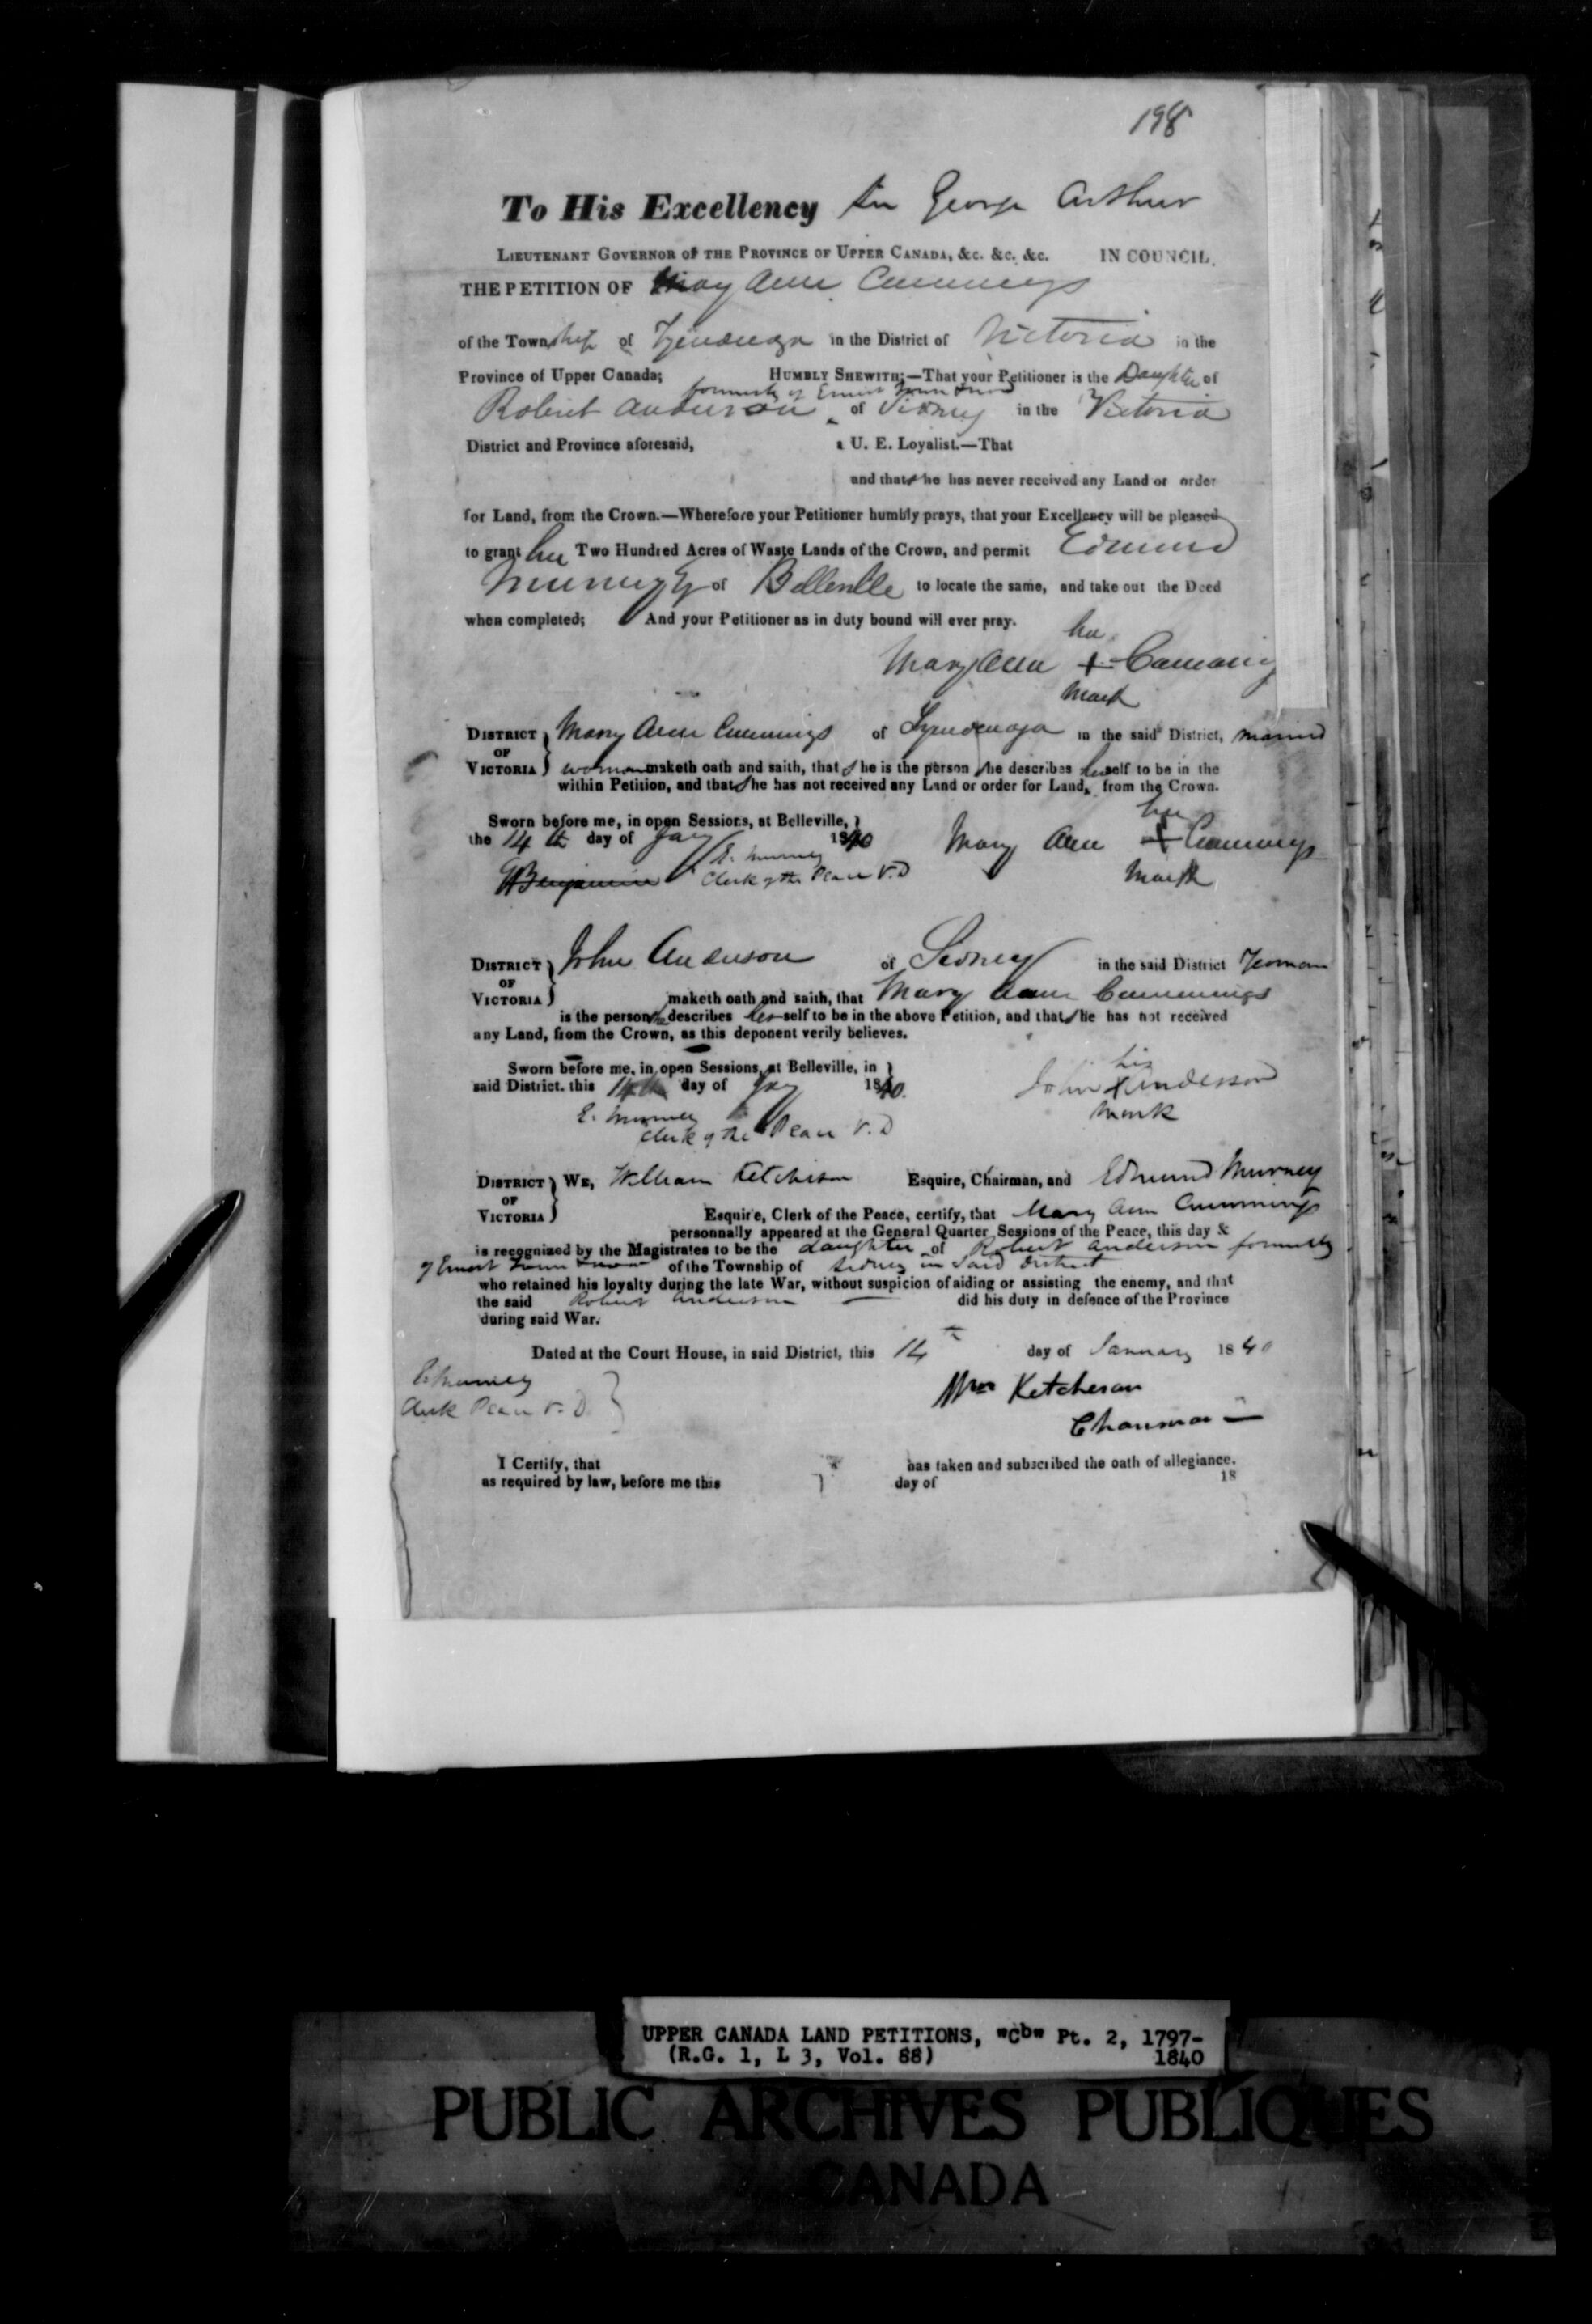 198
To His Excellency Sir George Arthur
LIEUTENANT GOVERNOR OF THE PROVINCE OF UPPER CANADA, &c. &c. &c. IN COUNCIL.
THE PETITION OF Mary Ann Cummings
of the Township of Tyendenaga in the District of Victoria in the
Province of Upper Canada; HUMBLY SHEWITH;—That your Petitioner is the Daughter of
formerly of Ernest Town & now
Robert Anderson of Sidney in the Victoria
District and Province aforesaid, a U. E. Loyalist.—That
and that she has never received any Land or order
for Land, from the Crown.—Wherefore your Petitioner humbly prays, that your Excellency will be pleased
to grant her Two Hundred Acres of Waste Lands of the Crown, and permit Edmund
Murney of Belleville to locate the same, and take out the Deed
when completed; And your Petitioner as in duty bound will ever pray.
her
Mary Ann + Cummings
mark
DISTRICT OF VICTORIA } Mary Ann Cummings of Tyendenaga in the said District, married
woman maketh oath and saith, that she is the person she describes herself to be in the
within Petition, and that she has not received any Land or order for Land, from the Crown.
Sworn before me, in open Sessions, at Belleville, }
the 14th day of Jany 1840
her
Mary Ann + Cummings
mark
E. Murney
Clerk of the Peace V.D
DISTRICT OF VICTORIA } John Anderson of Sidney in the said District Yeoman
maketh oath and saith, that Mary Ann Cummings
is the person she describes herself to be in the above Petition, and that she has not received
any Land, from the Crown, as this deponent verily believes.
Sworn before me, in open Sessions, at Belleville, in }
said District. this 14th day of Jany 1840.
his
John X Anderson
mark
E. Murney
Clerk of the Peace V.D
DISTRICT OF VICTORIA } WE, William Ketcheson Esquire, Chairman, and Edmund Murney
Esquire, Clerk of the Peace, certify, that Mary Ann Cummings
personnally appeared at the General Quarter Sessions of the Peace, this day &
is recognized by the Magistrates to be the daughter of Robert Anderson formerly
of Ernest Town & now of the Township of Sidney in said District
who retained his loyalty during the late War, without suspicion of aiding or assisting the enemy, and that
the said Robert Anderson did his duty in defence of the Province
during said War.
Dated at the Court House, in said District, this 14th day of January 1840
E. Murney
Clerk Peace V.D. }
Wm Ketcheson
Chairman
I Certify, that has taken and subscribed the oath of allegiance.
as required by law, before me this day of 18
UPPER CANADA LAND PETITIONS, "Cb" Pt. 2, 1797-
(R.G. 1, L 3, Vol. 88) 1840
PUBLIC ARCHIVES PUBLIQUES
CANADA